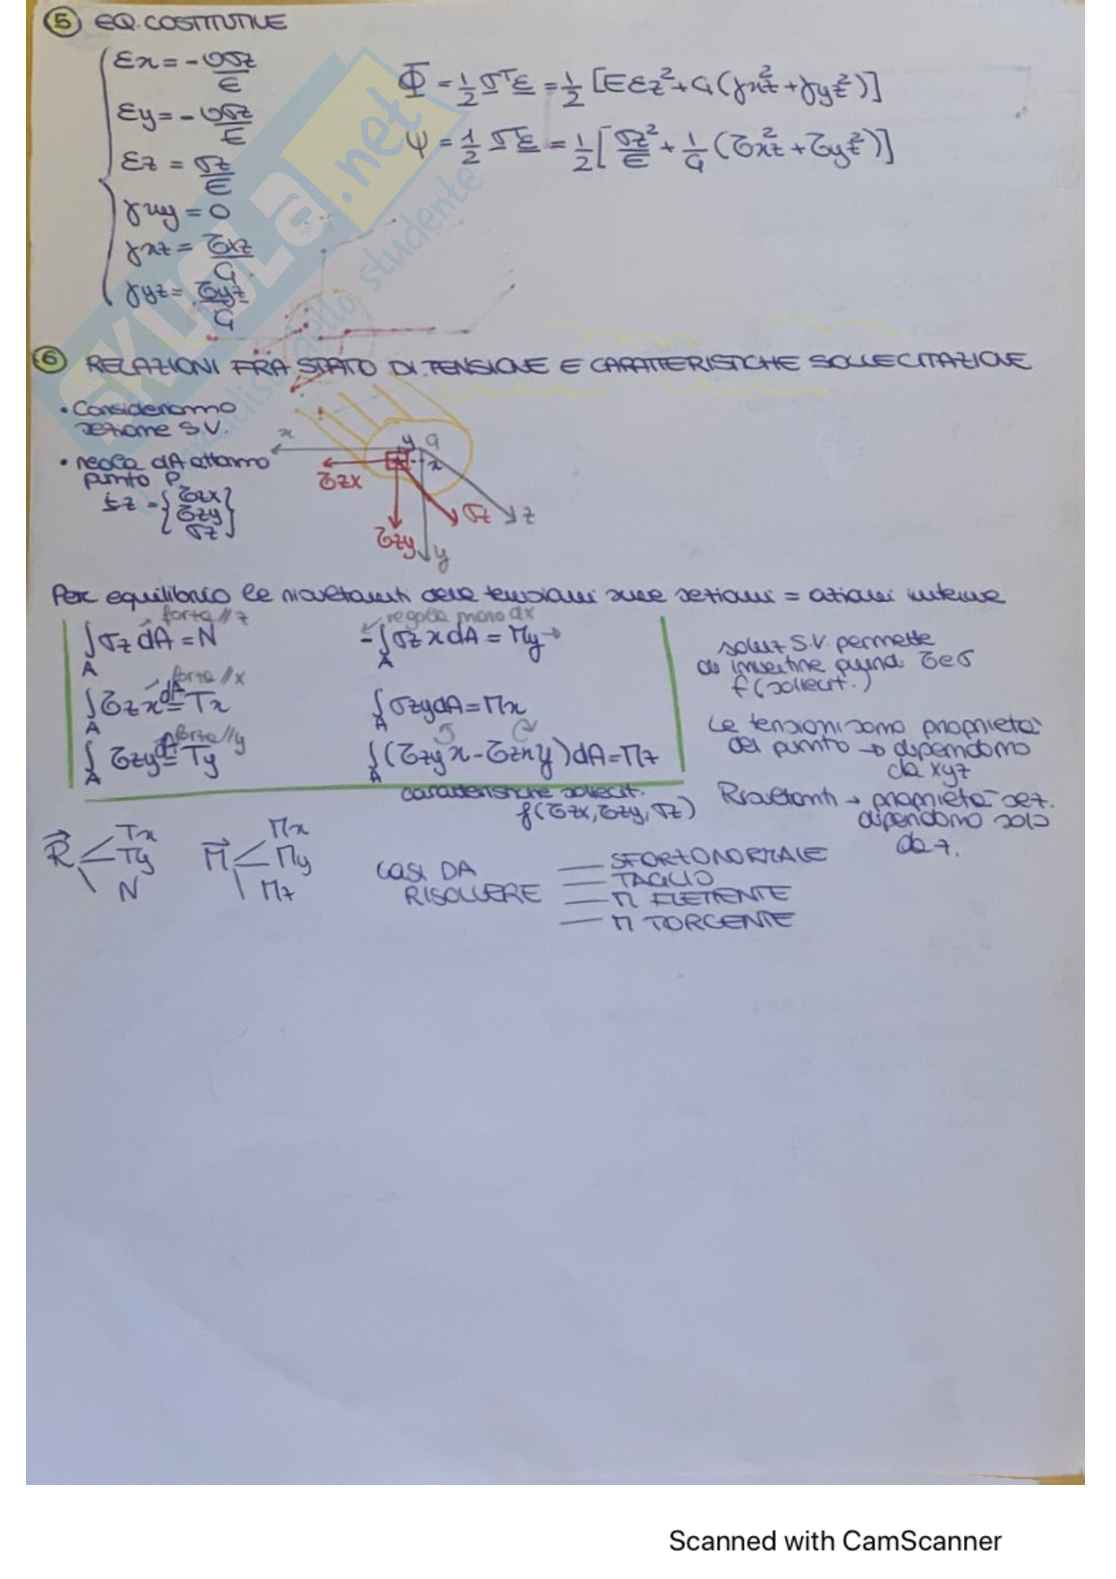 5 EQ. COSTITUTIVE
εx = -νσz/E
εy = -νσz/E
εz = σz/E
γxy = 0
γxz = τxz/G
γyz = τyz/G
Φ = 1/2 σᵀε = 1/2 [Eεz² + G(γxz² + γyz²)]
Ψ = 1/2 σε = 1/2 [σz²/E + 1/G (τxz² + τyz²)]
6 RELAZIONI FRA STATO DI TENSIONE E CARATTERISTICHE SOLLECITAZIONE
• Consideriamo
sezione S.V.
• areola dA attorno
punto P
tz = {τzx
τzy
σz}
x
y G
x
τzx
σz
z
τzy
y
Per equilibrio le risultanti delle tensioni sulle sezioni = azioni interne
forza // z
∫A σz dA = N
forza // x
∫A τzx dA = Tx
forza // y
∫A τzy dA = Ty
regola mano dx
-∫A σz x dA = My →
∫A σz y dA = Mx
∫A (τzy x - τzx y) dA = Mz
caratteristiche sollecit.
f(τzx, τzy, σz)
soluz S.V. permette
di invertire quindi τ e σ
f(sollecit.)
Le tensioni sono proprietà
del punto → dipendono
da xyz
Risultanti → proprietà sez.
dipendono solo
da z.
R Tx
Ty
N
M Mx
My
Mz
CASI DA
RISOLVERE
SFORZO NORMALE
TAGLIO
M FLETTENTE
M TORCENTE
SKUOLA.net
dello studente
Scanned with CamScanner